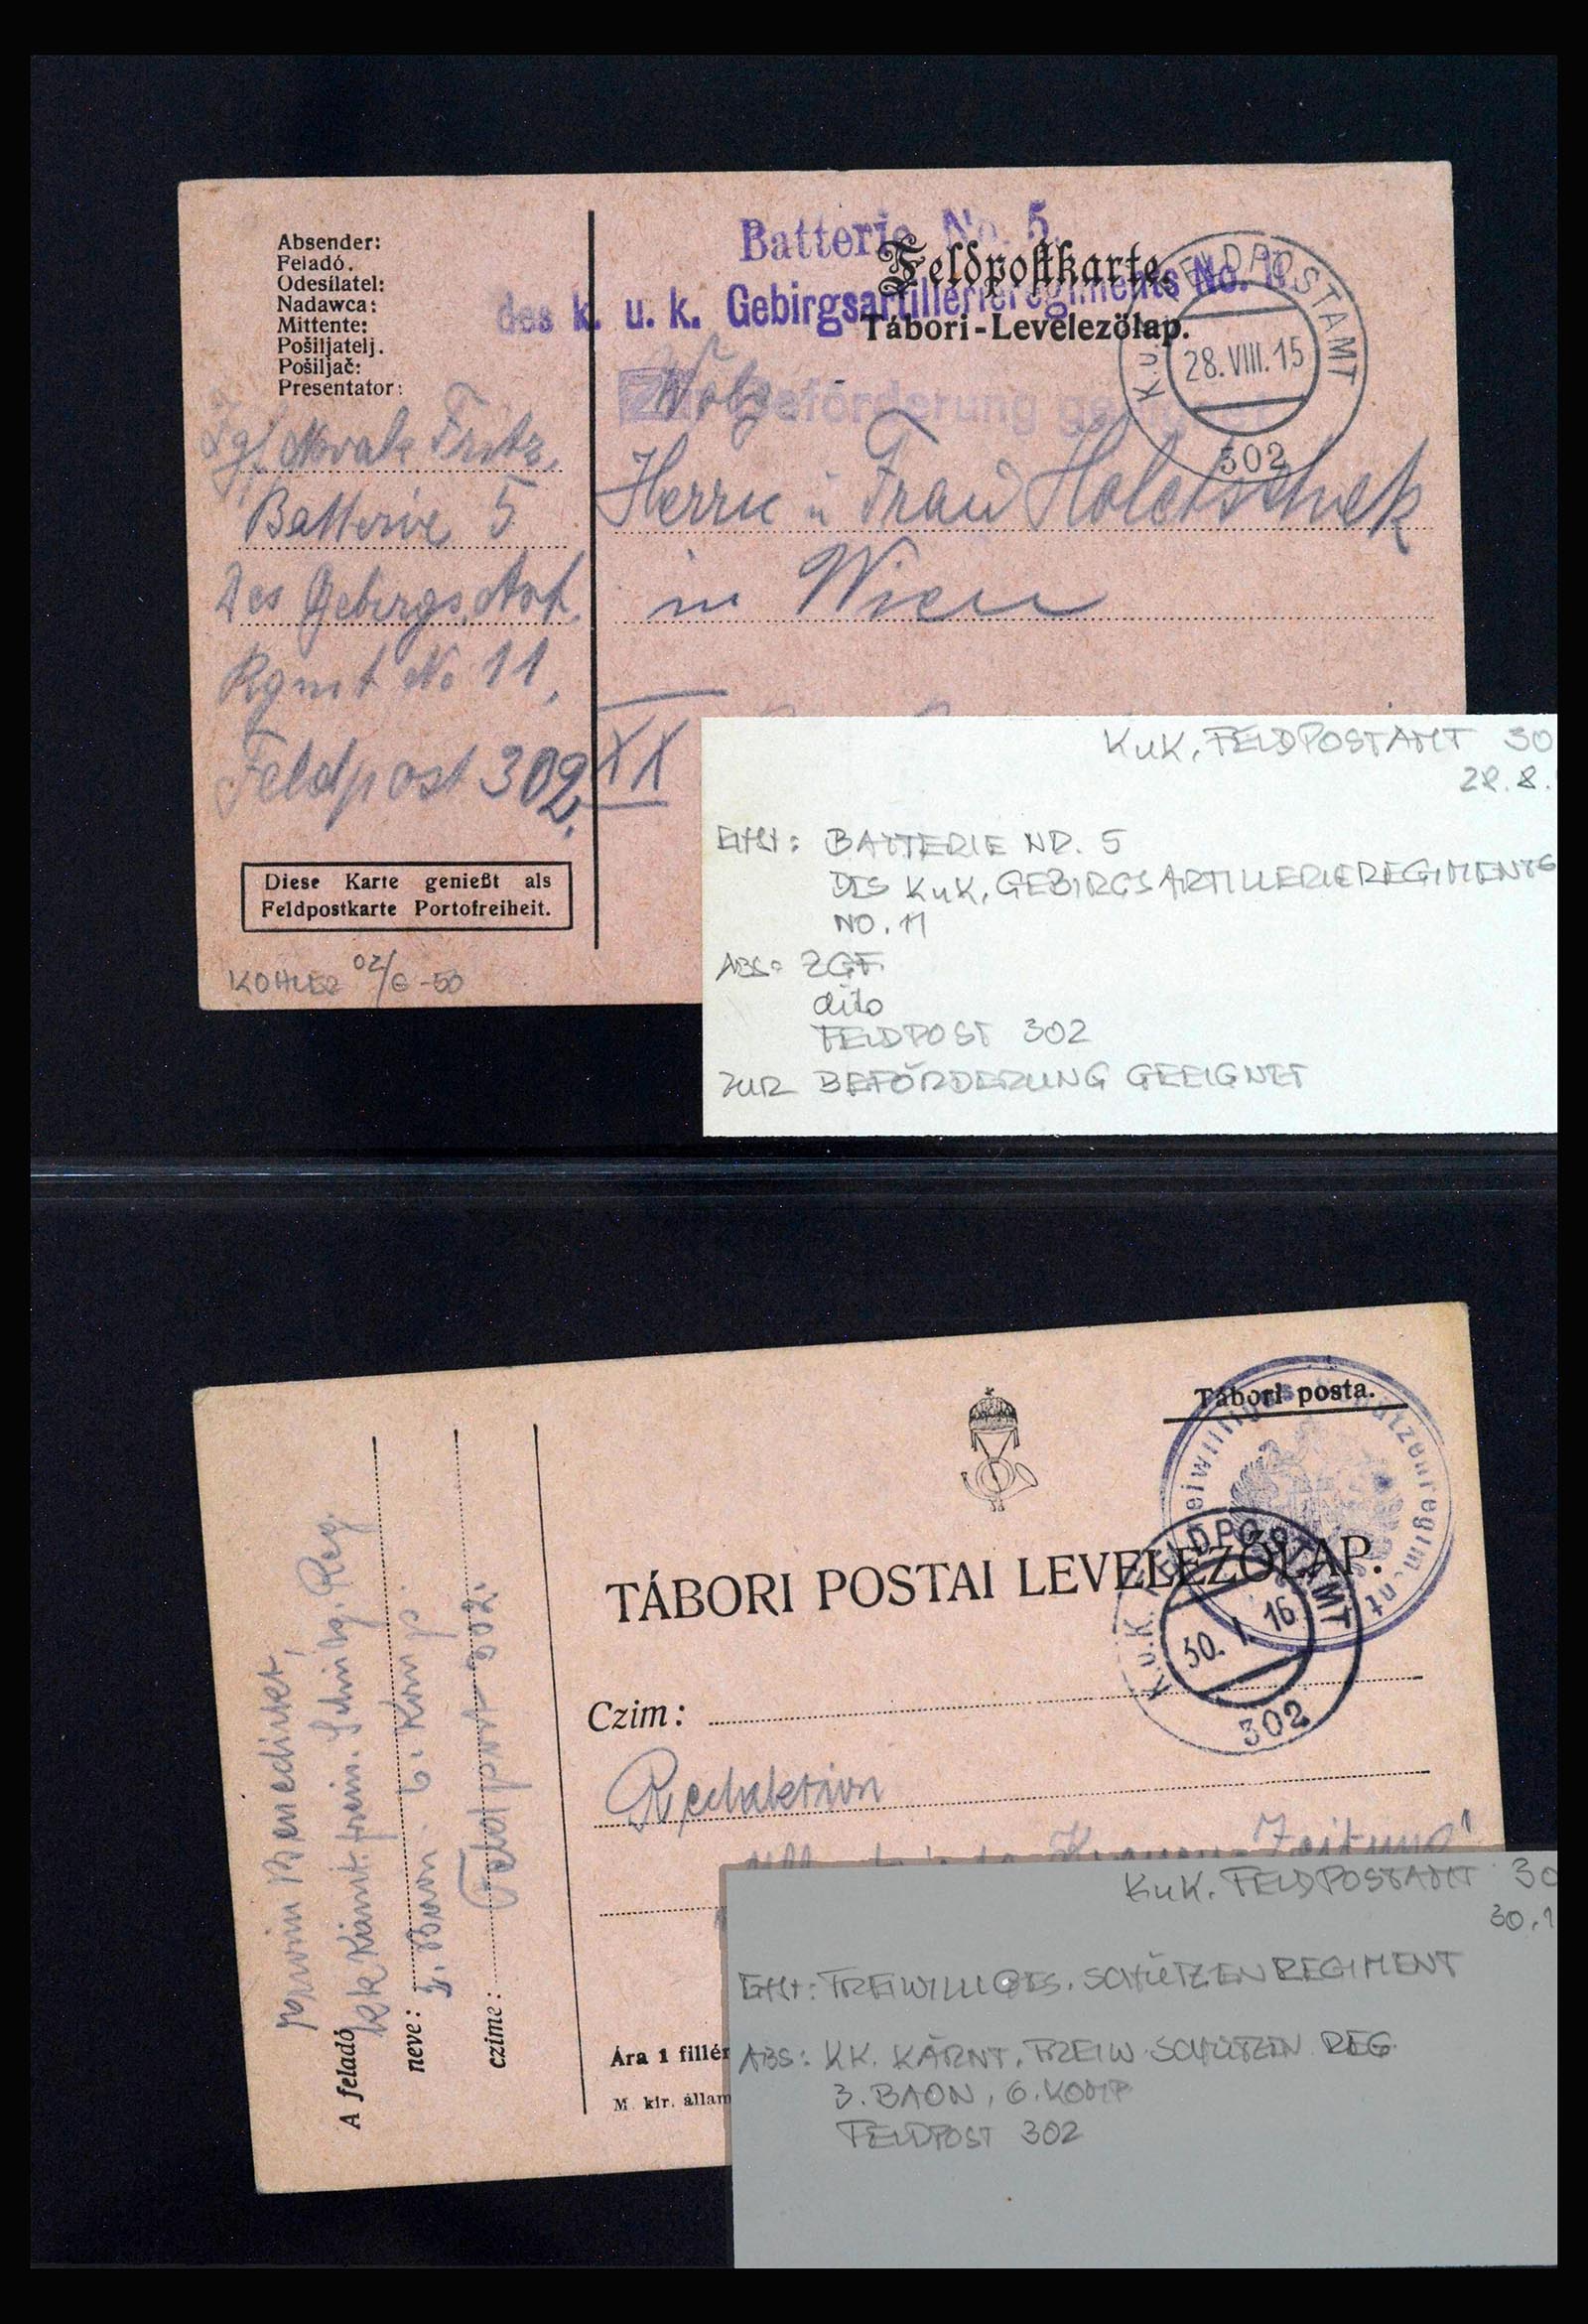 Absender:
Feladó.
Odesílatel:
Nadawca:
Mittente:
Pošiljatelj.
Pošiljač:
Presentator:
Batterie No. 5
Feldpostkarte.
des k. u. k. Gebirgsartillerieregiments No. 11
Tábori-Levelezölap.
K.u.K. FELDPOSTAMT
28.VIII.15
302
Zur Beförderung
Zgf. Novak Fritz,
Batterie 5
Des Gebirgs. Art.
Rgmt No 11,
Feldpost 302.
Herrn u Frau Holetschek
in Wien
XX
Diese Karte genießt als
Feldpostkarte Portofreiheit.
KOHLER 02/6-50
KuK. FELDPOSTAMT 30
28.8.
BATTERIE NO. 5
DES KuK. GEBIRGSARTILLERIEREGIMENTS
NO. 11
ABS: ZGF.
dito
FELDPOST 302
ZUR BEFÖRDERUNG GEEIGNET
Tábori posta.
Freiwilliges Schützenregiment
TÁBORI POSTAI LEVELEZŐLAP.
K.u.K. FELDPOSTAMT
30. I. 16
302
Czim:
Redaktion
Zeitung"
Benedikt,
kk Kärnt. freiw. Schützg. Reg.
3. Baon. 6. Komp.
Feldpost 302.
A feladó
neve:
czime:
Ára 1 fillér
M. kir. állam
KuK. FELDPOSTAMT 30
30.1
FREIWILLIGES. SCHÜTZENREGIMENT
ABS: KK. KÄRNT. FREIW SCHÜTZEN REG
3. BAON, 6. KOMP
FELDPOST 302